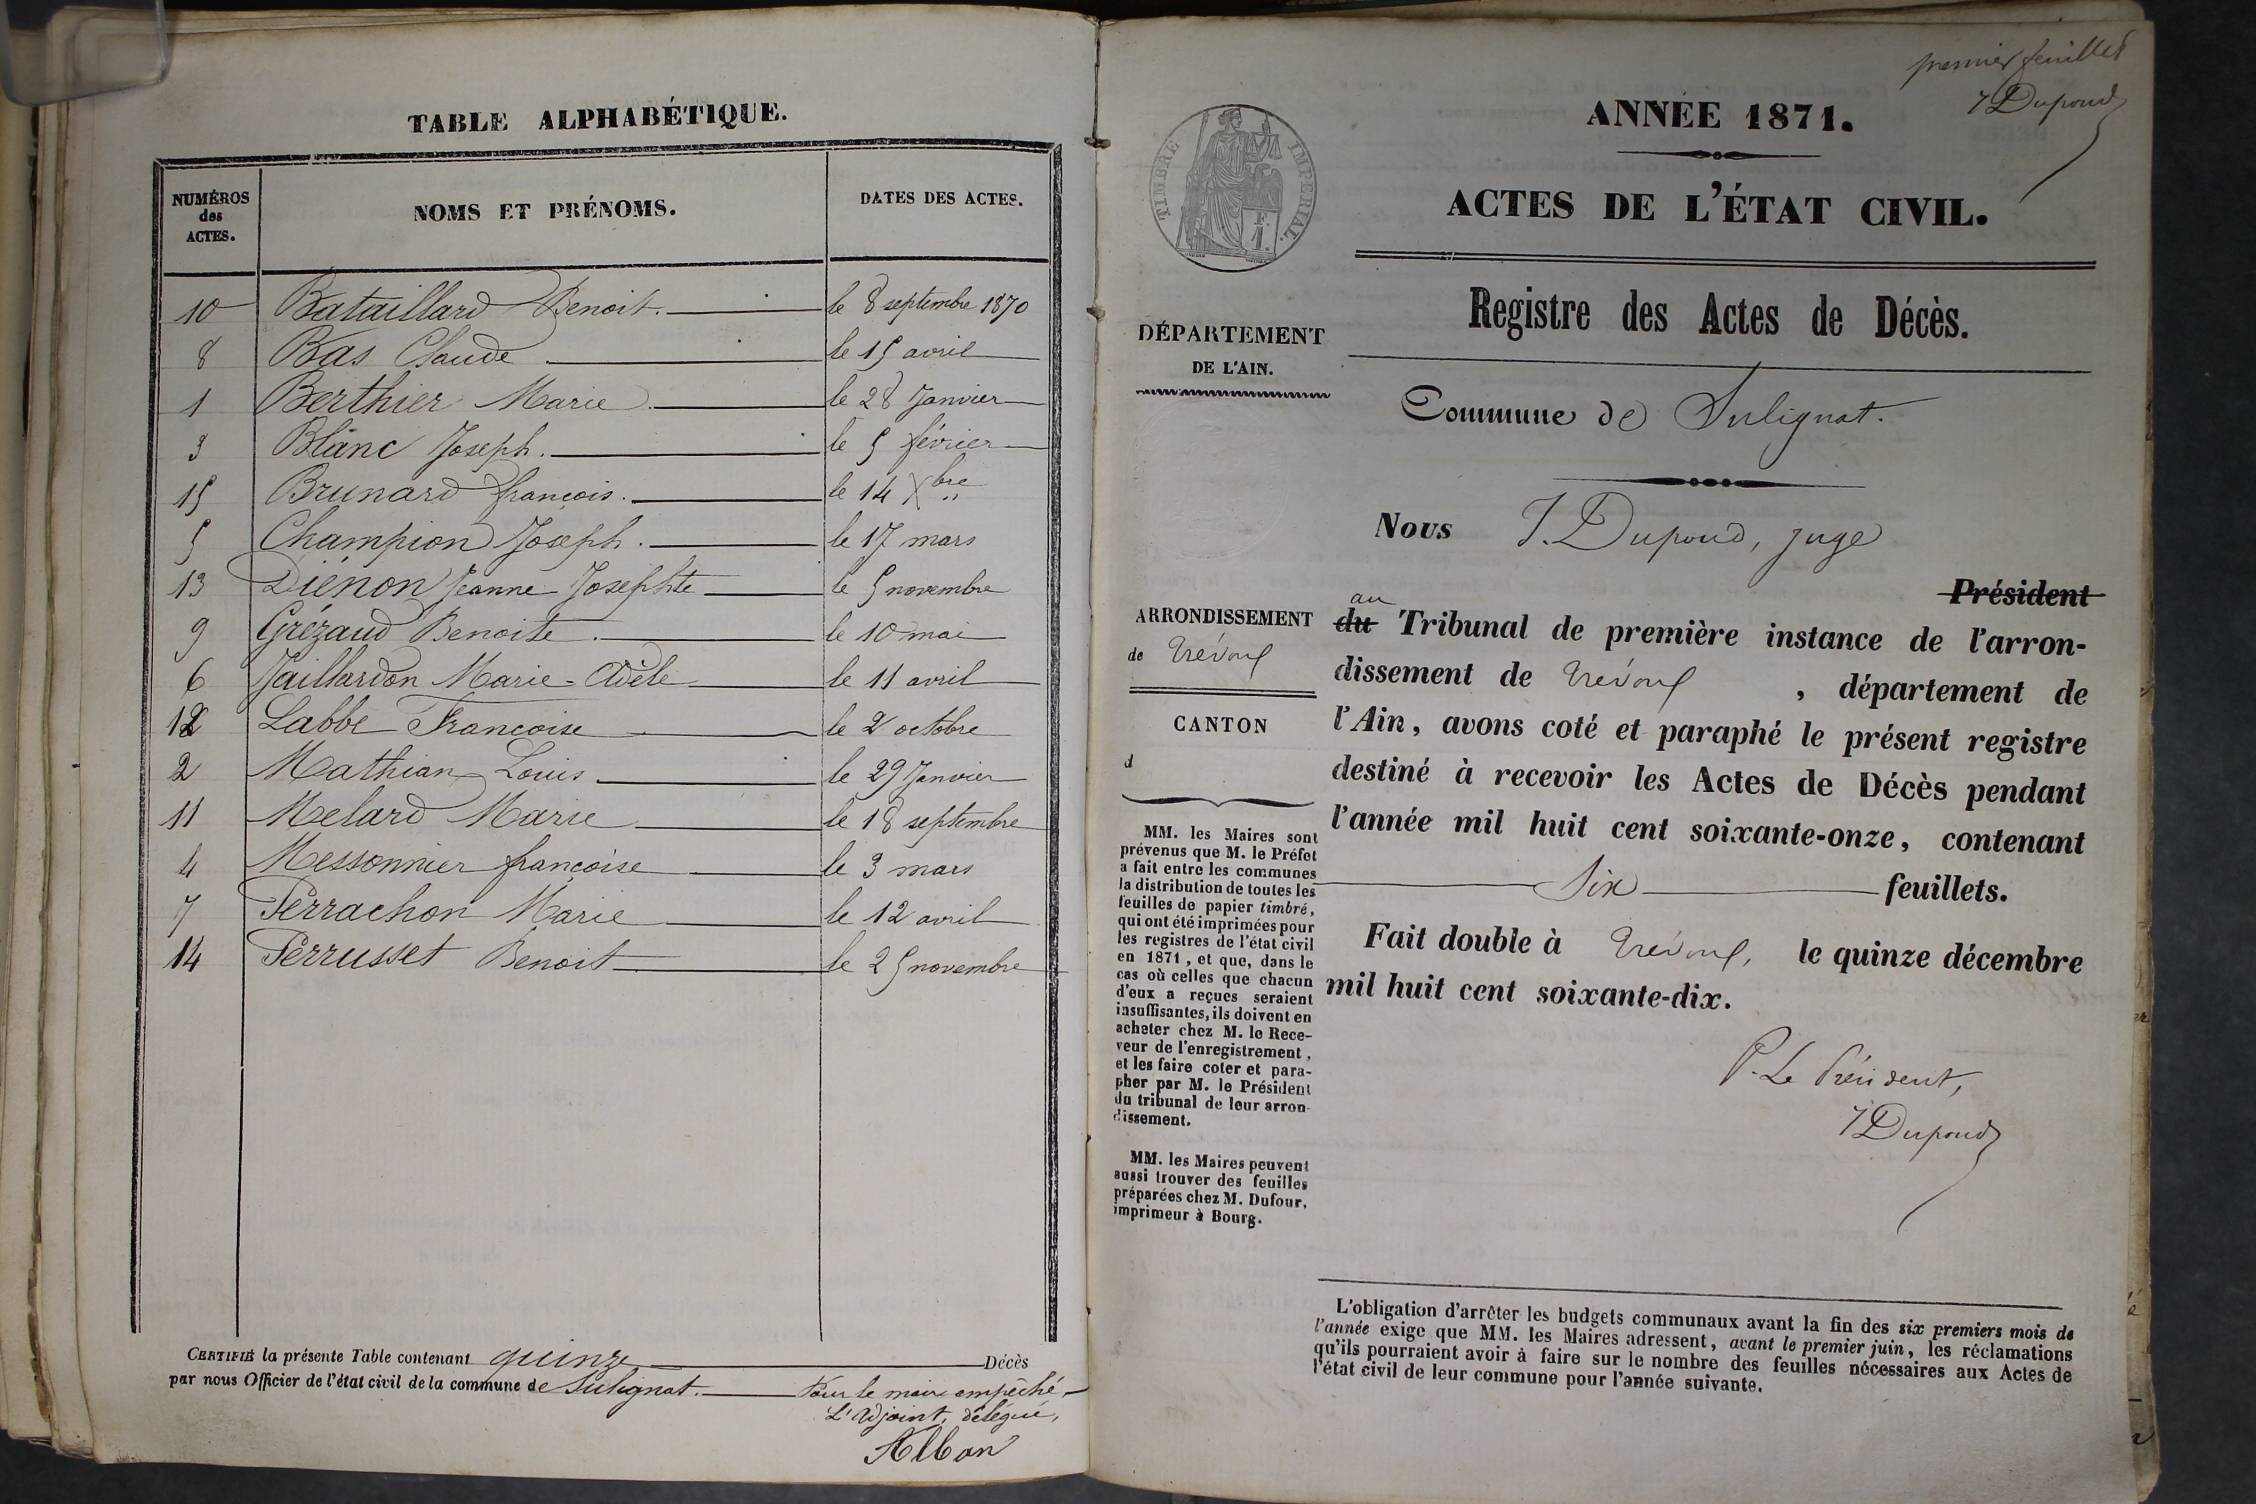 TABLE ALPHABÉTIQUE.
NUMÉROS des ACTES. NOMS ET PRÉNOMS. DATES DES ACTES.
10 Bataillard Benoit. le 8 septembre 1870
8 Bas Claude le 15 avril
1 Berthier Marie le 28 Janvier
3 Blanc Joseph. le 5 février
15 Brunard françois. le 14 Xbre
5 Champion Joseph. le 17 mars
13 Diénon Jeanne Josephte le 5 novembre
9 Grézaud Benoite. le 10 mai
6 Jaillardon Marie-Adèle le 11 avril
12 Labbe Francoise le 2 octobre
2 Mathian Louis le 29 Janvier
11 Melard Marie le 18 septembre
4 Messonnier françoise le 3 mars
7 Perrachon Marie le 12 avril
14 Perrusset Benoit le 25 novembre
CERTIFIÉ la présente Table contenant quinze Décès
par nous Officier de l'état civil de la commune de Sulignat.
Pour le maire empêché
L'Adjoint, délégué,
Alban
premier feuillet
J Dupoud
TIMBRE IMPERIAL.
F.
1.
ANNÉE 1871.
ACTES DE L'ÉTAT CIVIL.
Registre des Actes de Décès.
DÉPARTEMENT
DE L'AIN.
Commune de Sulignat.
Nous J. Dupoud, juge
Président
au
du Tribunal de première instance de l'arron-
dissement de Trévoux, département de
l'Ain, avons coté et paraphé le présent registre
destiné à recevoir les Actes de Décès pendant
l'année mil huit cent soixante-onze, contenant
Six feuillets.
Fait double à Trévoux, le quinze décembre
mil huit cent soixante-dix.
P. Le Président,
J Dupoud
ARRONDISSEMENT
de Trévoux
CANTON
d
MM. les Maires sont
prévenus que M. le Préfet
a fait entre les communes
la distribution de toutes les
feuilles de papier timbré,
qui ont été imprimées pour
les registres de l'état civil
en 1871, et que, dans le
cas où celles que chacun
d'eux a reçues seraient
insuffisantes, ils doivent en
acheter chez M. le Rece-
veur de l'enregistrement,
et les faire coter et para-
pher par M. le Président
du tribunal de leur arron-
dissement.
MM. les Maires peuvent
aussi trouver des feuilles
préparées chez M. Dufour,
imprimeur à Bourg.
L'obligation d'arrêter les budgets communaux avant la fin des six premiers mois de
l'année exige que MM. les Maires adressent, avant le premier juin, les réclamations
qu'ils pourraient avoir à faire sur le nombre des feuilles nécessaires aux Actes de
l'état civil de leur commune pour l'année suivante.